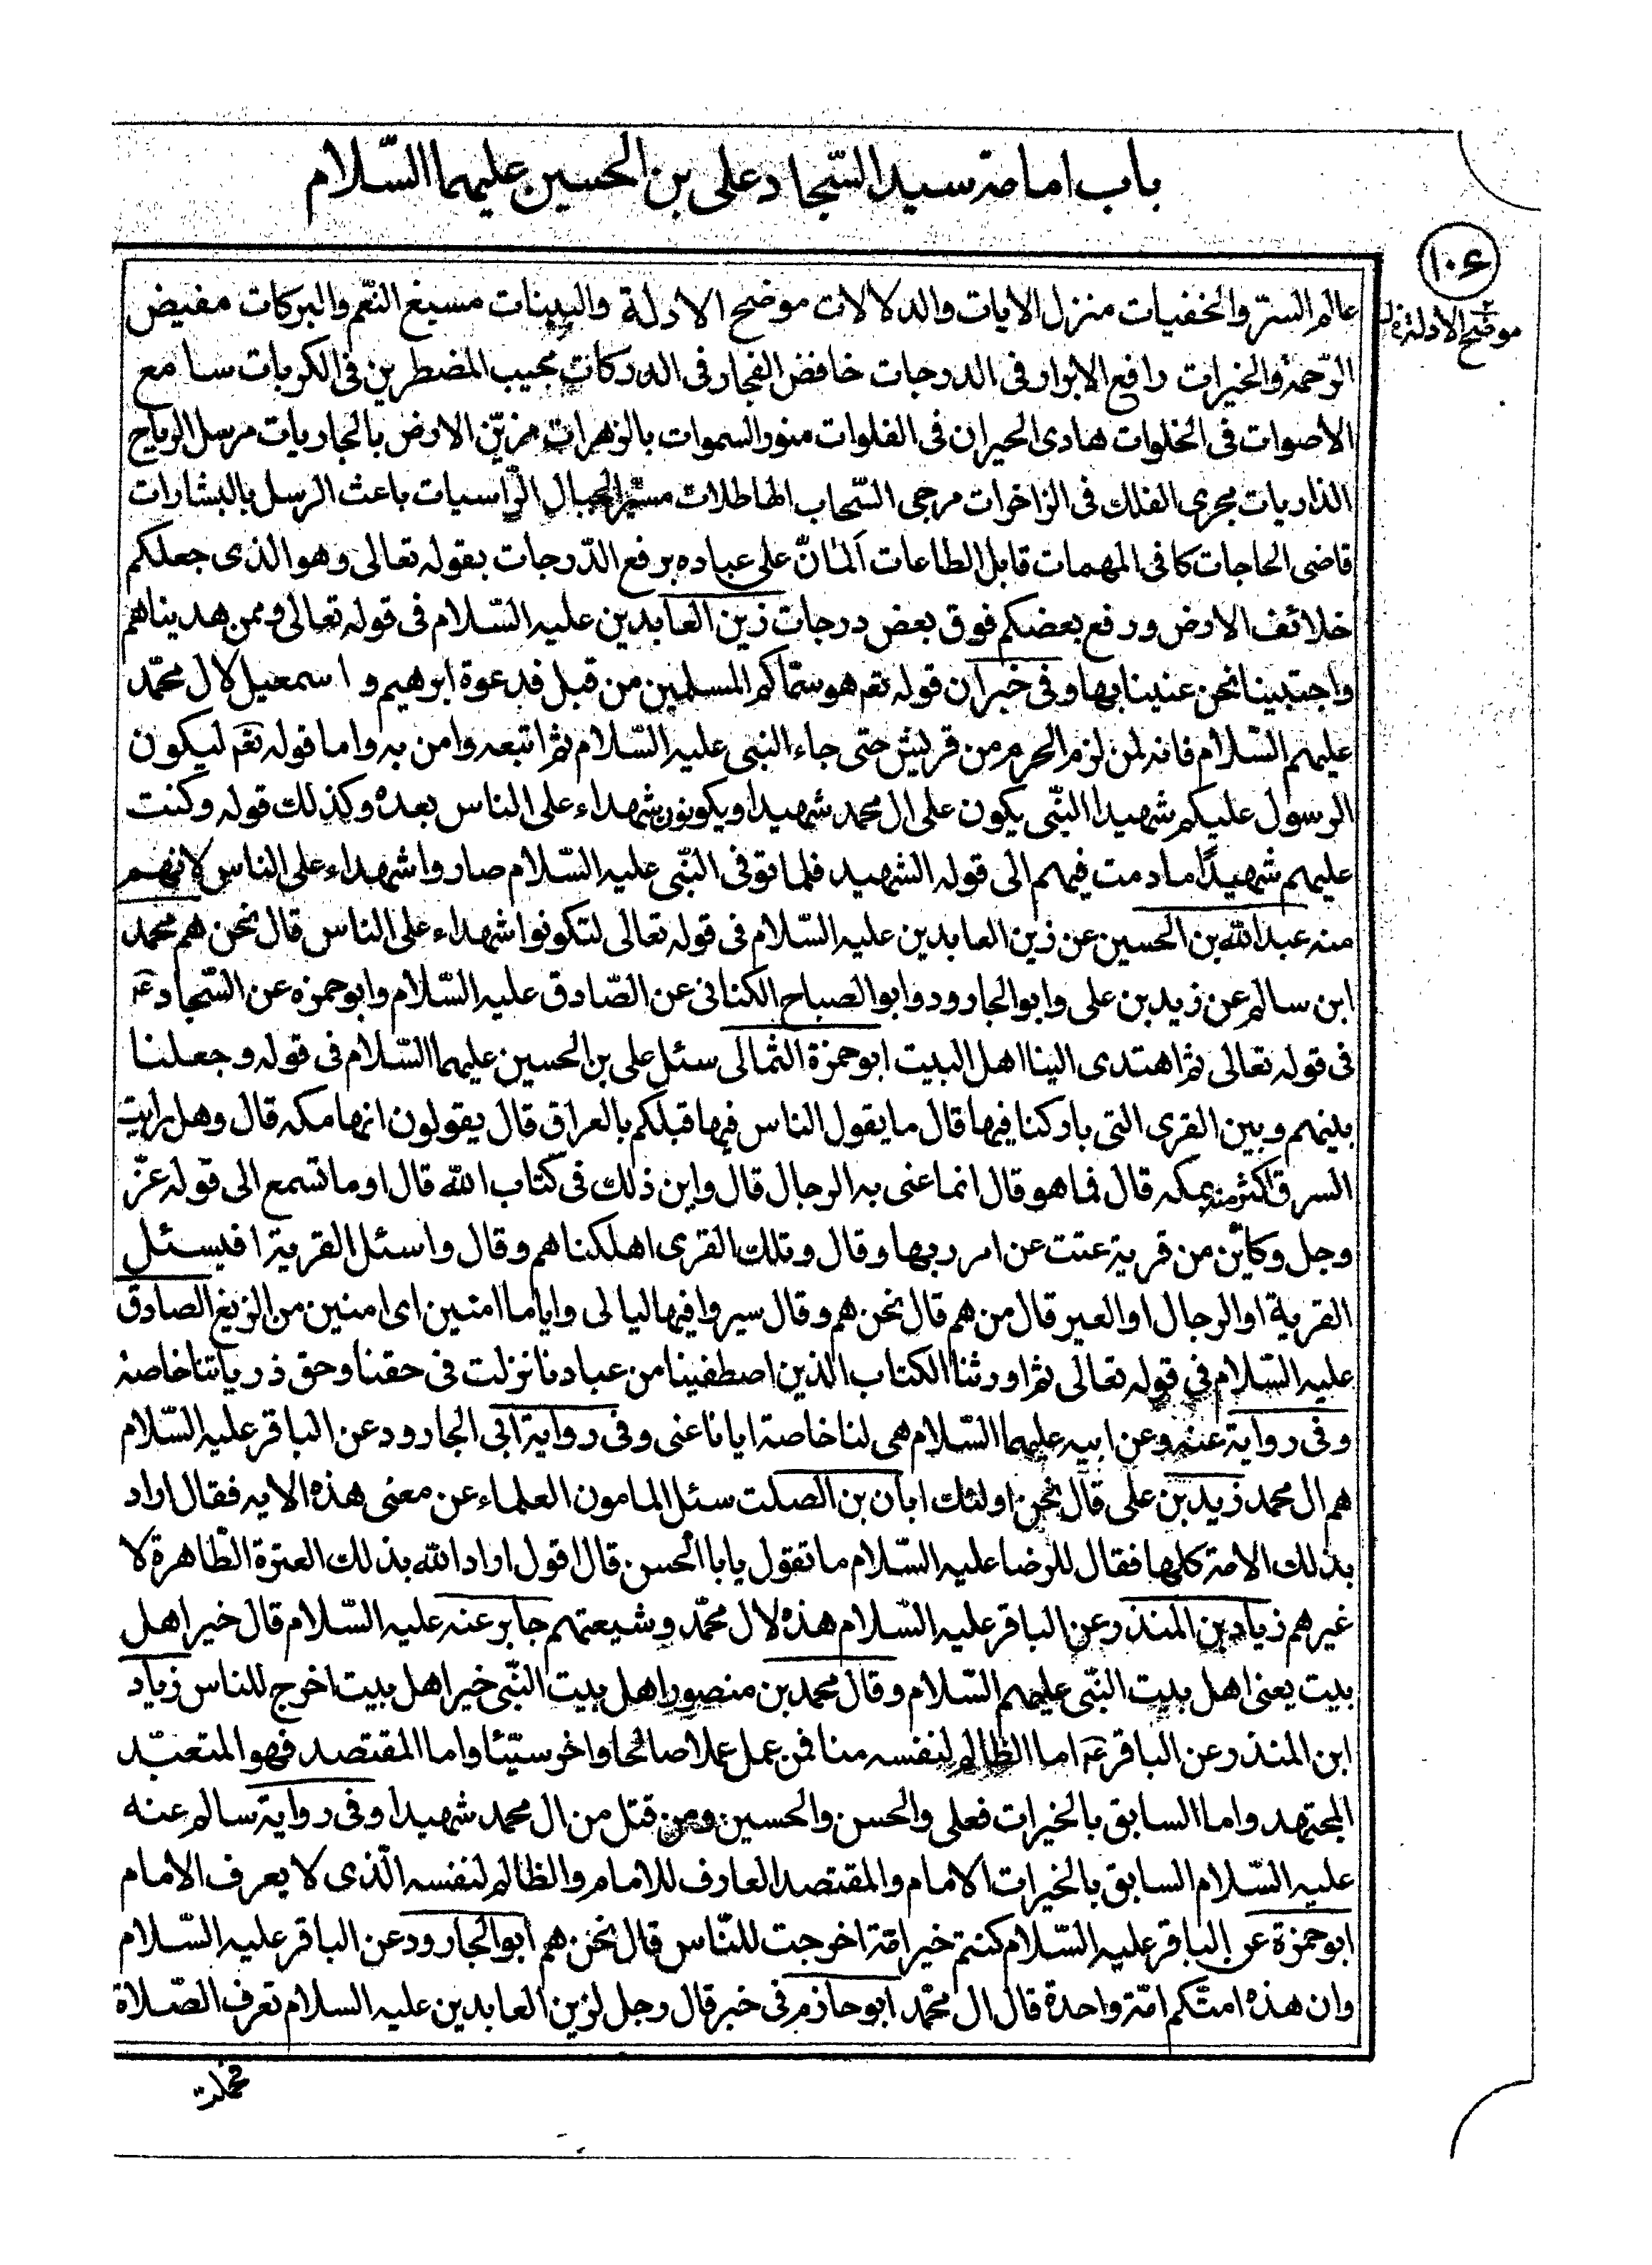 باب امامة سيد السّجاد على بن الحسين عليهما السّلام
١٠٦
موضح الادلة
عالم السرّ والخفيات منزل الايات والدلالات موضح الادلة والبينات مسبغ النّعم والبركات مفيض
الرّحمة والخيرات رافع الابرار فى الدرجات خافض الفجار فى الدركات مجيب المضطرين فى الكربات سامع
الاصوات فى الخلوات هادى الحيران فى الفلوات منور السموات بالزهرات مزيّن الارض بالجاريات مرسل الرياح
الذاريات مجرى الفلك فى الزاخرات مزجى السّحاب الهاطلات مسيّر الجبال الرّاسيات باعث الرسل بالبشارات
قاضى الحاجات كافى المهمات قابل الطاعات المانّ على عباده برفع الدّرجات بقوله تعالى وهو الذى جعلكم
خلائف الارض ورفع بعضكم فوق بعض درجات زين العابدين عليه السّلام فى قوله تعالى وممن هديناهم
واجتبينا نحن عنينا بها وفى خبر ان قوله تع هو سمّاكم المسلمين من قبل فدعوة ابرهيم و اسمعيل لال محمّد
عليهم السّلام فانه لمن لزم الحرم من قريش حتى جاء النبى عليه السّلام ثم اتبعه وامن به واما قوله تع ليكون
الرسول عليكم شهيدا النبّى يكون على ال محمد شهيدا ويكونون شهداء على الناس بعده وكذلك قوله وكنت
عليهم شهيدًا ما دمت فيهم الى قوله الشهيد فلما توفى النبّى عليه السّلام صاروا شهداء على الناس لانهم
منه عبد الله بن الحسين عن زين العابدين عليه السّلام فى قوله تعالى لتكونوا شهداء على الناس قال نحن هم محمد
ابن سالم عن زيد بن على وابو الجارود وابو الصباح الكنانى عن الصّادق عليه السّلام وابو حمزه عن السّجاد ع
فى قوله تعالى ثم اهتدى الينا اهل البيت ابو حمزة الثمالى سئل على بن الحسين عليهما السّلام فى قوله وجعلنا
بينهم وبين القرى التى باركنا فيها قال ما يقول الناس فيها قبلكم بالعراق قال يقولون انها مكه قال وهل رايت
السرق اكثر منه بمكه قال فما هو قال انما عنى به الرجال قال واين ذلك فى كتاب الله قال او ما تسمع الى قوله عزّ
وجل وكايّن من قرية عتت عن امر ربها وقال وتلك القرى اهلكناهم وقال واسئل القرية افيسئل
القرية او الرجال او العير قال من هم قال نحن هم وقال سيروا فيها ليالى واياما امنين اى امنين من الزيغ الصادق
عليه السّلام فى قوله تعالى ثم اورثنا الكتاب الذين اصطفينا من عبادنا نزلت فى حقنا وحق ذرياتنا خاصة
وفى رواية عنه وعن ابيه عليهما السّلام هى لنا خاصة ايانا عنى وفى رواية ابى الجارود عن الباقر عليه السّلام
هم ال محمد زيد بن على قال نحن اولئك ابان بن الصلت سئل المامون العلماء عن معنى هذه الايه فقال اراد
بذلك الامة كلها فقال للرضا عليه السّلام ما تقول يا با الحسن قال اقول اراد الله بذلك العترة الطّاهرة لا
غيرهم زياد بن المنذر عن الباقر عليه السّلام هذه لال محمّد وشيعتهم جابر عنه عليه السّلام قال خير اهل
بيت يعنى اهل بيت النبّى عليهم السّلام وقال محمد بن منصور اهل بيت النبّى خير اهل بيت اخرج للناس زياد
ابن المنذر عن الباقر ع اما الظالم لنفسه منا فمن عمل عملا صالحا واخر سيّئا واما المقتصد فهو المتعبّد
المجتهد واما السابق بالخيرات فعلى والحسن والحسين ومن قتل من ال محمد شهيدا وفى رواية سالم عنه
عليه السّلام السابق بالخيرات الامام والمقتصد العارف للامام والظالم لنفسه الّذى لا يعرف الامام
ابو حمزة عن الباقر عليه السّلام كنتم خير امّة اخرجت للنّاس قال نحن هم ابو الجارود عن الباقر عليه السّلام
وان هذه امتّكم امّة واحدة قال ال محمّد ابو حازم فى خبر قال رجل لزين العابدين عليه السلام تعرف الصّلاة